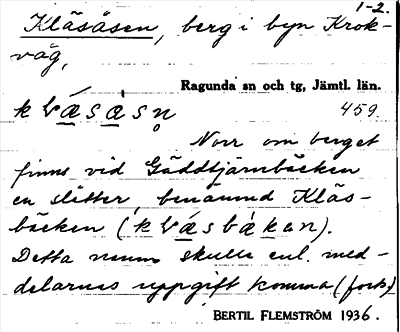 1-2.
Kläsåsen, berg i byn Krok-
våg,
Ragunda sn och tg, Jämtl. län.
459
Norr om berget
finns vid Gäddtjärnbäcken
en slåtter, benämnd Kläs-
bäcken
Detta namn skulle enl. med-
delarnes uppgift komma (forts.)
BERTIL FLEMSTRÖM 1936.